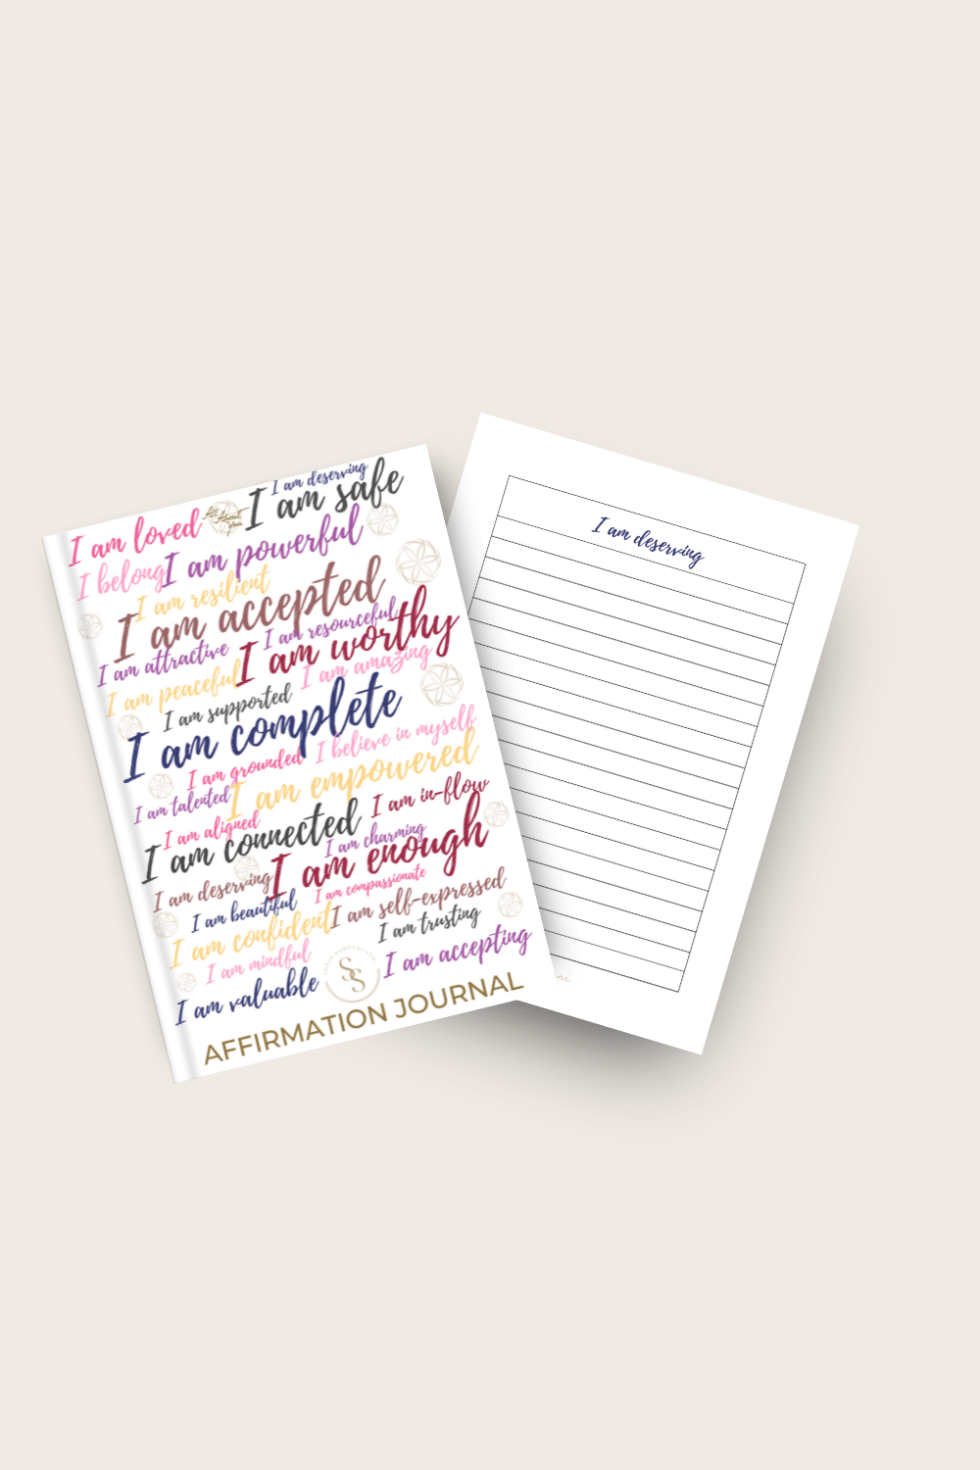 I am deserving
I am safe
I am loved
I am powerful
I belong
I am resilient
I am accepted
I am resourceful
I am attractive
I am worthy
I am peaceful
I am amazing
I am supported
I am complete
I believe in myself
I am grounded
I am empowered
I am talented
I am in-flow
I am aligned
I am connected
I am charming
I am enough
I am deserving
I am compassionate
I am beautiful
I am self-expressed
I am confident
I am trusting
I am mindful
I am accepting
I am valuable
SS
AFFIRMATION JOURNAL
I am deserving